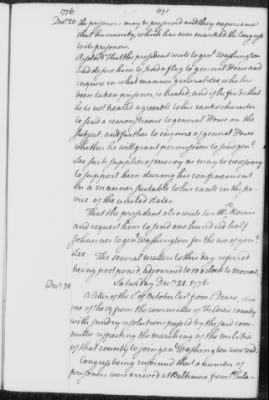 1776
Dec. 20
the prisoners may be preserved and they experience
that humanity, which has ever marked the Congress
to its prisoners.
Resolved That the president write to genl. Washington
and desire him to send a flag to general Howe and
inquire in what manner general Lee who has
been taken prisoner, is treated, and if he finds that
he is not treated agreeable to his rank & character
to send a remonstrance to general Howe on the
subject, and further to enquire of general Howe
whether he will grant permission to send genl.
Lee such supplies of money as may be necessary
to support him during his confinement
in a manner suitable to his rank in the ser-
vice of the united states.
That the president also write to Mr. Morris
and request him to send one hundred half
Johannes to genl. Washington for the use of genl.
Lee.
The several matters to this day referred
being postponed, adjourned to 10 oClock to morrow.
Saturday Decr. 21. 1776
Decr. 21
A letter of the of October last from
one of the 19 from the committee of Frederic county
with sundry resolutions passed by the said com-
mittee respecting the marching of the militia
of that county to join genl. Washington were read.
Congress being informed that a number of
were arrived at Baltimore from Phila-